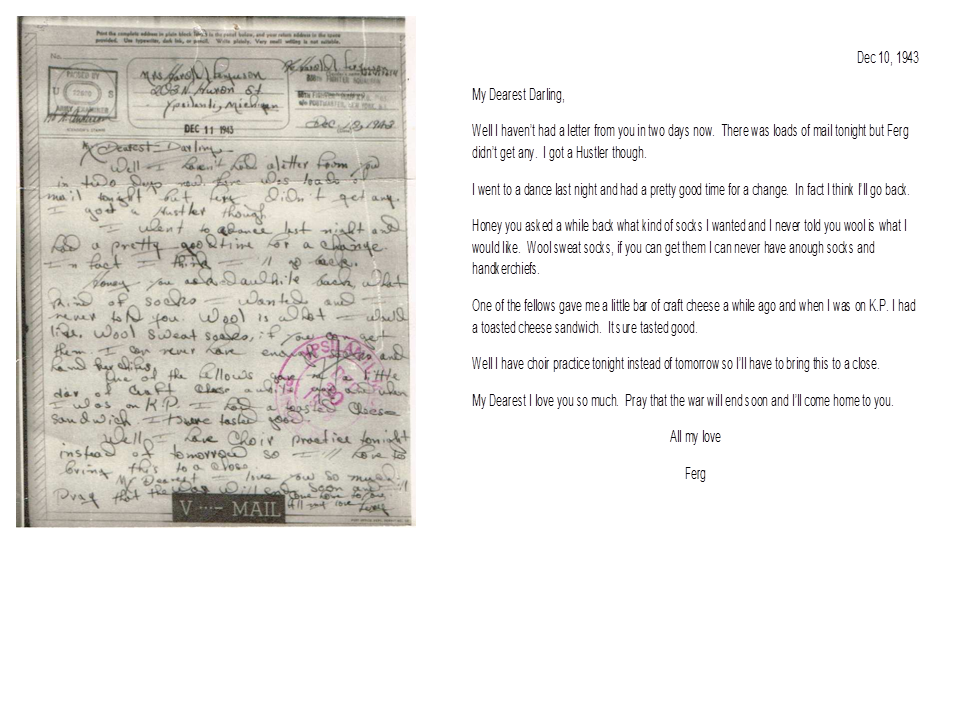 Print the complete address in plain block letters in the panel below, and your return address in the space
provided. Use typewriter, dark ink, or pencil. Write plainly. Very small writing is not suitable.
No.
PASSED BY
U S
ARMY EXAMINER
Mrs Harold J Ferguson
203 N. Huron St
Ypsilanti, Michigan
DEC 11 1943
My Dearest Darling,
Well I haven't had a letter from you
in two days now. There was loads of
mail tonight but Ferg didn't get any.
I got a Hustler though.
I went to a dance last night and
had a pretty good time for a change.
In fact I think I'll go back.
Honey you asked awhile back what
kind of socks I wanted and I
never told you. Wool is what I would
like. Wool sweat socks, if you can get
them. I can never have enough socks and
handkerchiefs.
One of the fellows gave me a little
bar of craft cheese awhile ago and when
I was on K.P. I had a toasted cheese
sandwich. It sure tasted good.
Well I have choir practice tonight
instead of tomorrow so I'll have to
bring this to a close.
My Dearest I love you so much.
Pray that the war will end soon and I'll
come home to you.
All my love
Ferg
V ···- MAIL
Dec 10, 1943
My Dearest Darling,
Well I haven't had a letter from you in two days now. There was loads of mail tonight but Ferg
didn't get any. I got a Hustler though.
I went to a dance last night and had a pretty good time for a change. In fact I think I'll go back.
Honey you asked a while back what kind of socks I wanted and I never told you wool is what I
would like. Wool sweat socks, if you can get them I can never have anough socks and
handkerchiefs.
One of the fellows gave me a little bar of craft cheese a while ago and when I was on K.P. I had
a toasted cheese sandwich. It sure tasted good.
Well I have choir practice tonight instead of tomorrow so I'll have to bring this to a close.
My Dearest I love you so much. Pray that the war will end soon and I'll come home to you.
All my love
Ferg